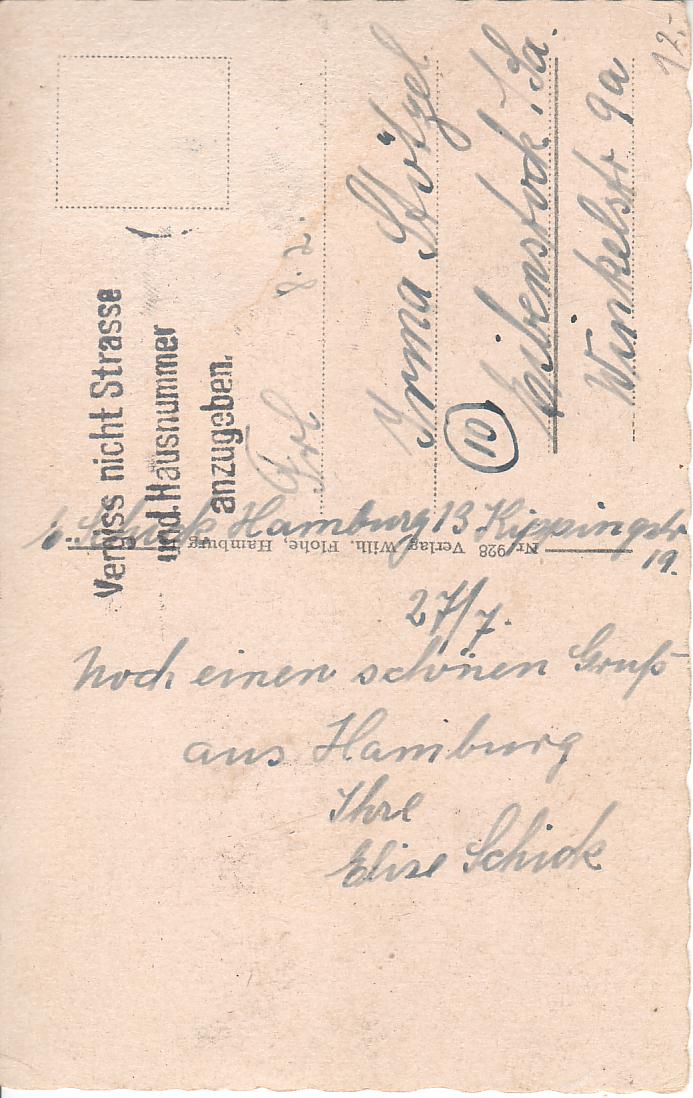 E. Schick Hamburg 13 Kippingstr
19.
27/7.
Noch einen schönen Gruß
aus Hamburg
Ihre
Elise Schick
Vergiss nicht Strasse
und Hausnummer
anzugeben.
!
Frl
8.2.
Irma Stötzel
(10)
Eibenstock i/Sa.
Winkelstr 9a
12.-
Nr. 928 Verlag Wilh. Flohe, Hamburg